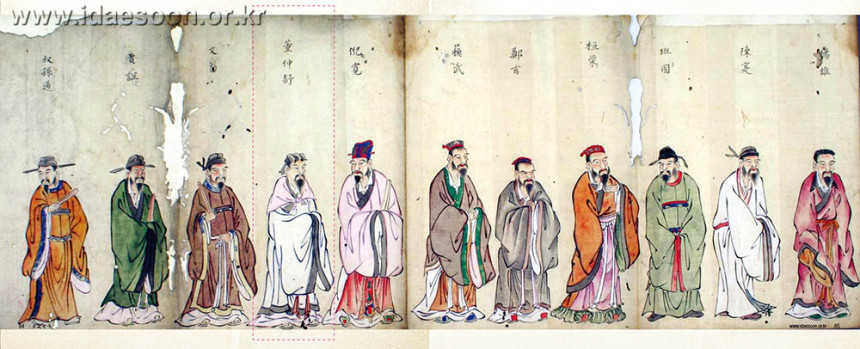 www.idaesoon.or.kr
叔孫通
賈誼
文翁
董仲舒
倪寬
蘇武
鄭玄
桓榮
班固
陳寔
雄
www.idaesoon.or.kr